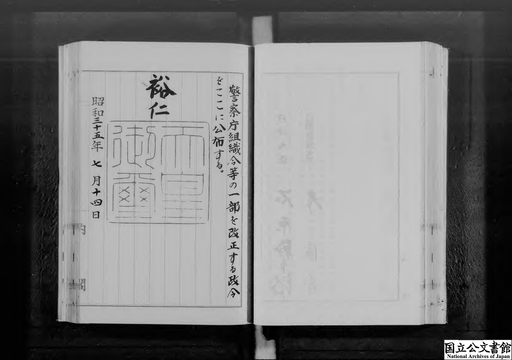 警察庁組織令等の一部を改正する政令
をここに公布する。
裕仁
天皇
御璽
昭和三十五年 七月十四日
内閣
国立公文書館
National Archives of Japan